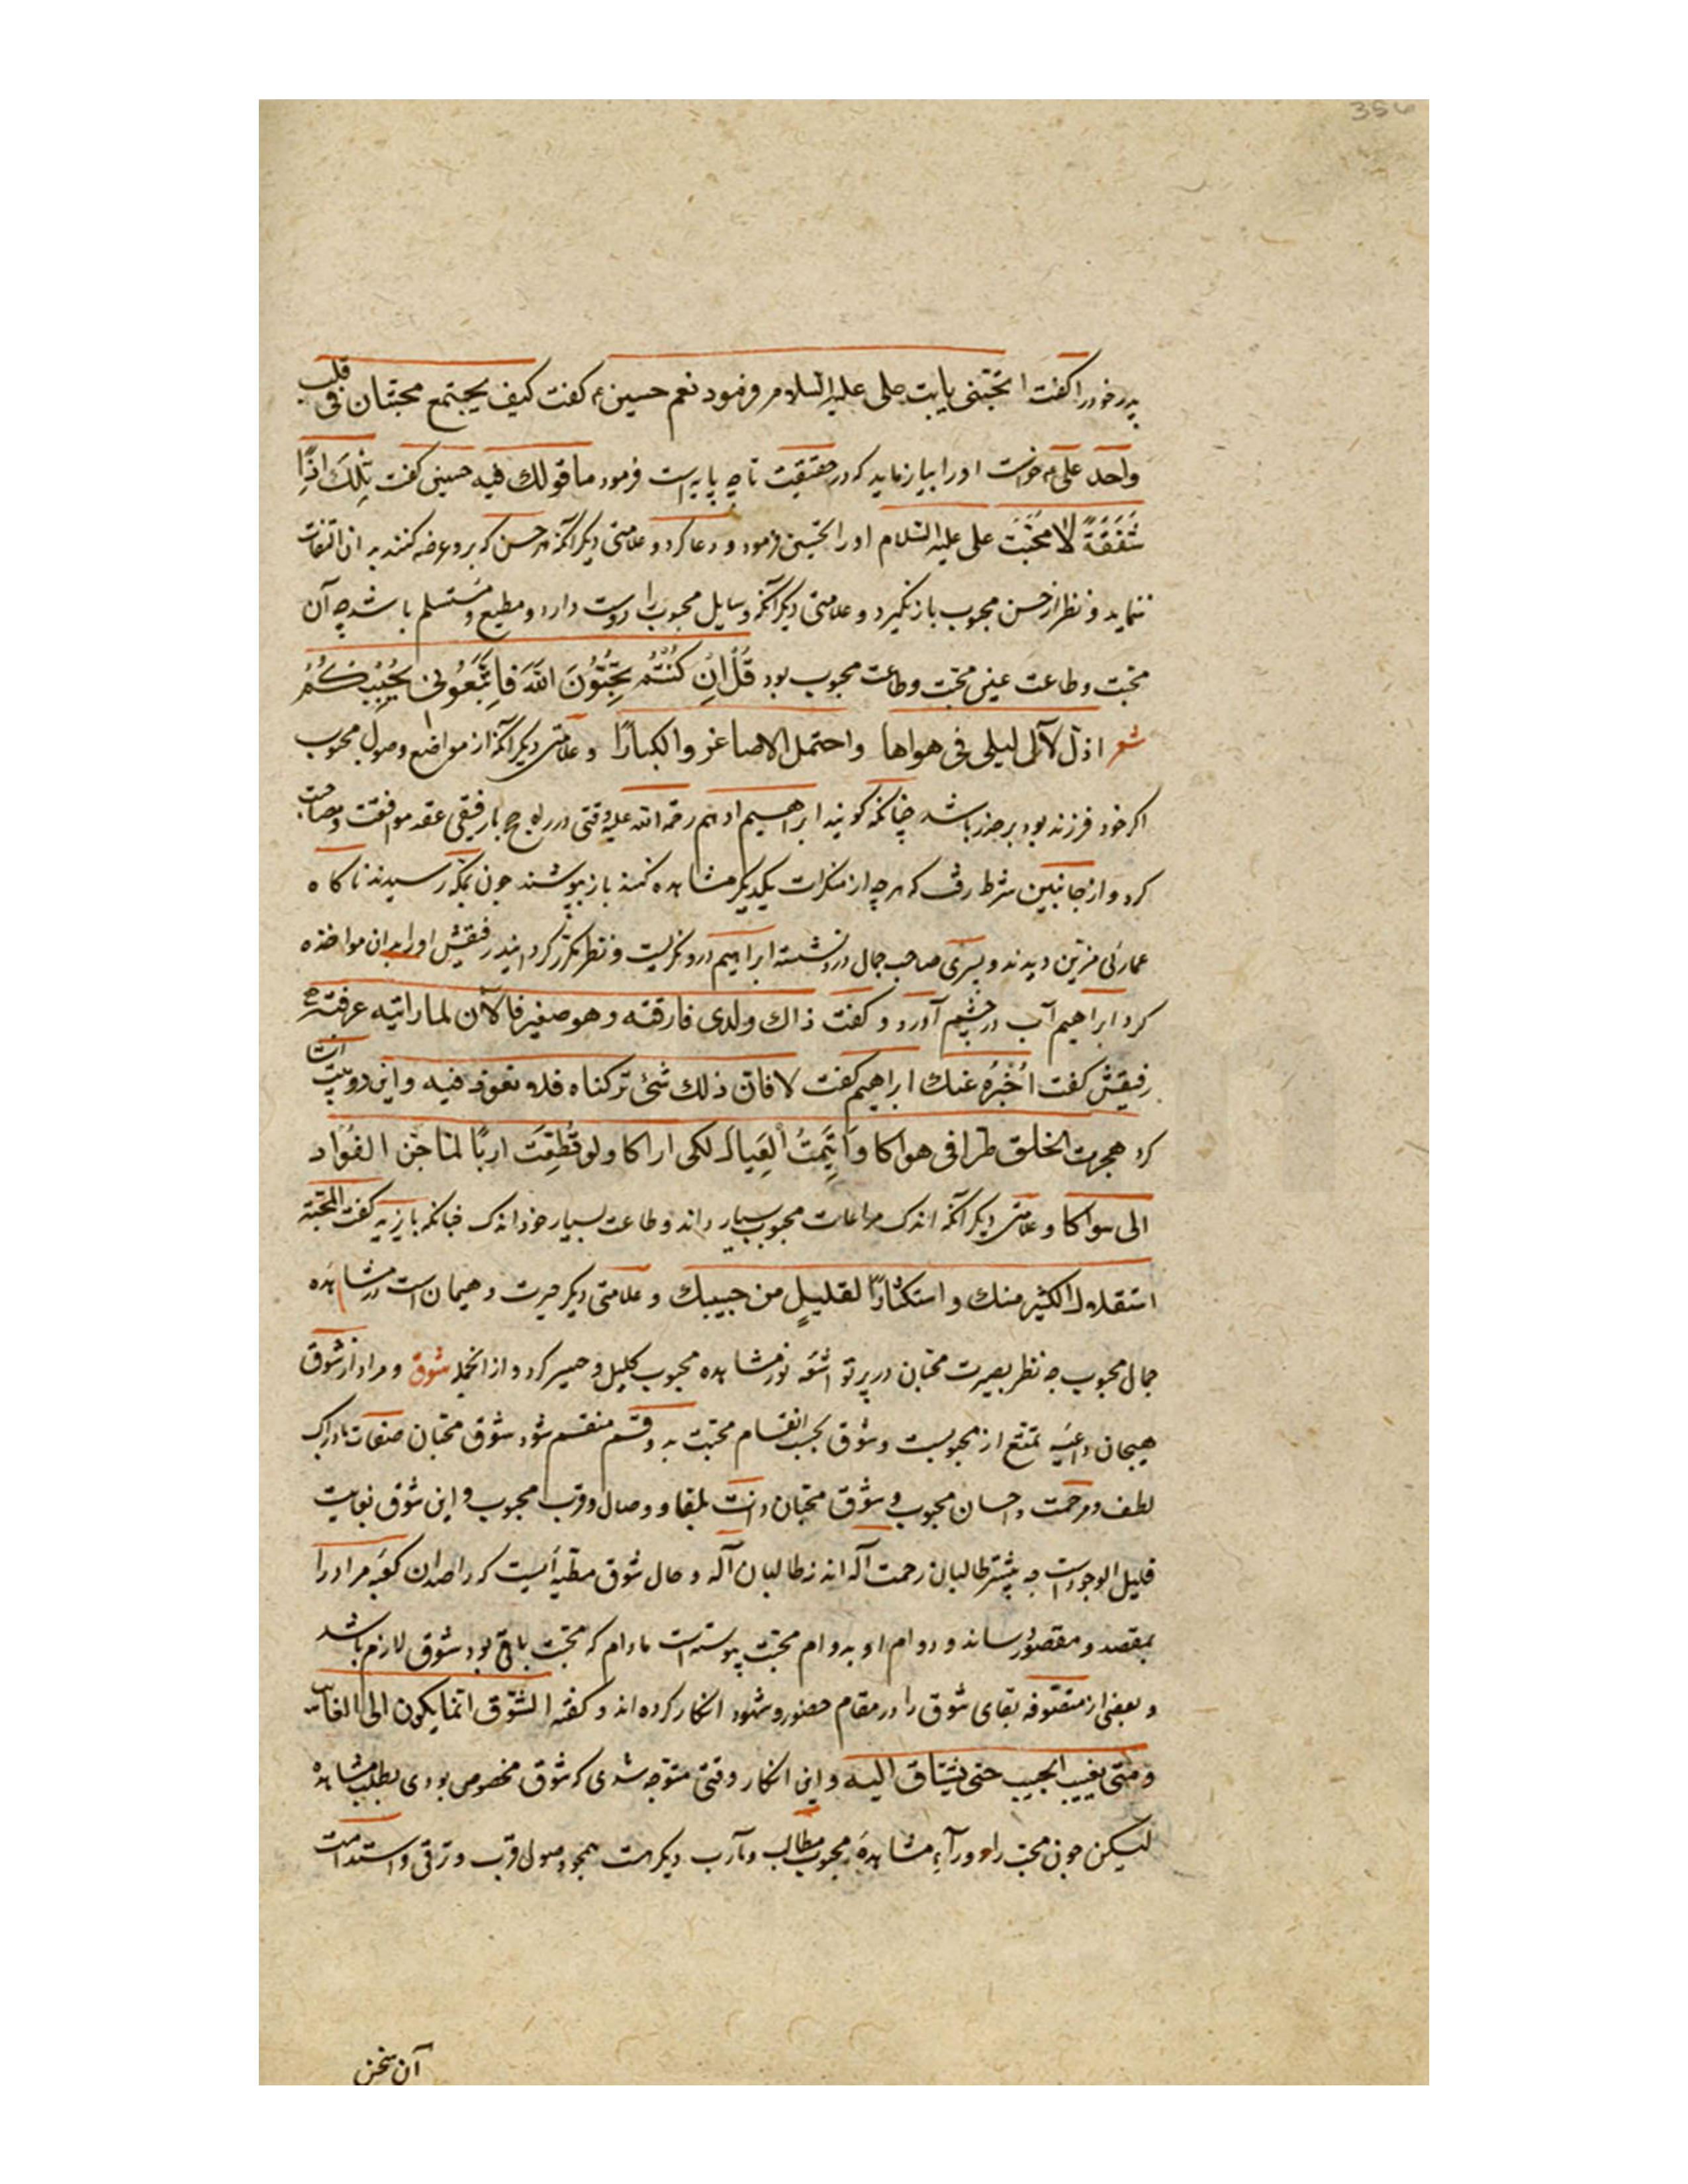 356
پدر خود را گفت اتحبّنی یا ابت علی علیه السلام فرمود نعم حسین ع گفت کیف یجتمع محبتان فی قلب
واحد علی ع خواست او را بیازماید که در حقیقت تا چه پایه است فرمود ما قولك فیه حسین گفت تِلكَ اذًا
شَفَقَةً لا مَحَبَّتً علی علیه السلام او را تحسین فرمود و دعا کرد و علامتی دیگر آنکه هر حسن که برو عرضه کنند بدان التفات
ننماید و نظر از حسن محبوب باز نگیرد و علامتی دیگر آنکه وسایل محبوب را دوست دارد و مطیع و مستسلم باشد چه آن
محبّت و طاعت عین محبّت و طاعت محبوب بود قُلْ اِنْ كُنْتُمْ تُحِبُّوُنَ اللهَ فَاتَّبِعُونی یُحْبِبْكُمُ
شعر اذلّ لآل لیلی فی هواها واحتمل الاصاغر والكبارًا و علامتی دیگر آنکه از مواضع وصول محبوب
اگر خود فرزند بود بر حذر باشد چنانکه گویند ابراهیم ادهم رحمة الله علیه وقتی در راه حج با رفیقی عقد موافقت و مصاحبت
کرد و از جانبین شرط رفت که هر چه از منکرات یکدیگر مشاهده کنند باز پوشند چون بمکه رسیدند ناگاه
عماری مزیّن دیدند و پسری صاحب جمال درو نشسته ابراهیم درو نگریست و نظر مکرّر گردانید رفیقش او را بدان مواخذه
کرد ابراهیم آب در چشم آورد و گفت ذاك ولدی فارقته وهو صغیر فالآن لما رایته عرفته
رفیقش گفت اُخْبِرُه عنك ابراهیم گفت لا فان ذلك شئ ترکناه فلا نعود فیه و این دو بیت انشا
کرد هجرت الخلق طرا فی هواكا وَاَیتَمتُ الْعِیالَ لكی اراكا ولو قُطِعتَ اربًا لما حَنّ الفؤاد
الی سواكا و علامتی دیگر آنکه اندک مراعات محبوب بسیار داند و طاعت بسیار خود اندک چنانکه بایزید گفت المحبّة
استقلال الكثیر منك و استكثارًا لقلیلٍ من حبیبك و علامتی دیگر حیرت و هیمان است در مشاهده
جمال محبوب چه نظر بصیرت محبّان در پرتو اشعّه نور مشاهده محبوب کلیل و حسیر گردد و از انجمله شوق و مراد از شوق
هیجان داعیه تمتّع از محبوبست و شوق بحسب انقسام محبّت بدو قسم منقسم شود شوق محبّان صفات بادراک
لطف و مرحمت و احسان محبوب و شوق محبّان ذات بلقا و وصال و قرب محبوب و این شوق بغایت
قلیل الوجود است چه بیشتر طالبان رحمت آله اند نه طالبان آله و حال شوق مطیّه ایست که قاصدان کعبه مراد را
بمقصد و مقصود رساند و دوام او بدوام محبّت پیوسته است مادام که محبّت باقی بود شوق لازم باشد
و بعضی از متصوّفه بقای شوق را در مقام حضور و شهود انکار کرده اند و گفته الشّوق انّما یكون الی الغائب
و متی یغیب الحبیب حتی یشتاق الیه و این انکار وقتی متوجّه شدی که شوق مخصوص بودی بطلب مشاهده
لیکن چون محبّ را و ورآءِ مشاهدۀ محبوب مطالب و مآرب دیگر هست همچو وصول و قرب و ترقی و استدامت
آن سخن